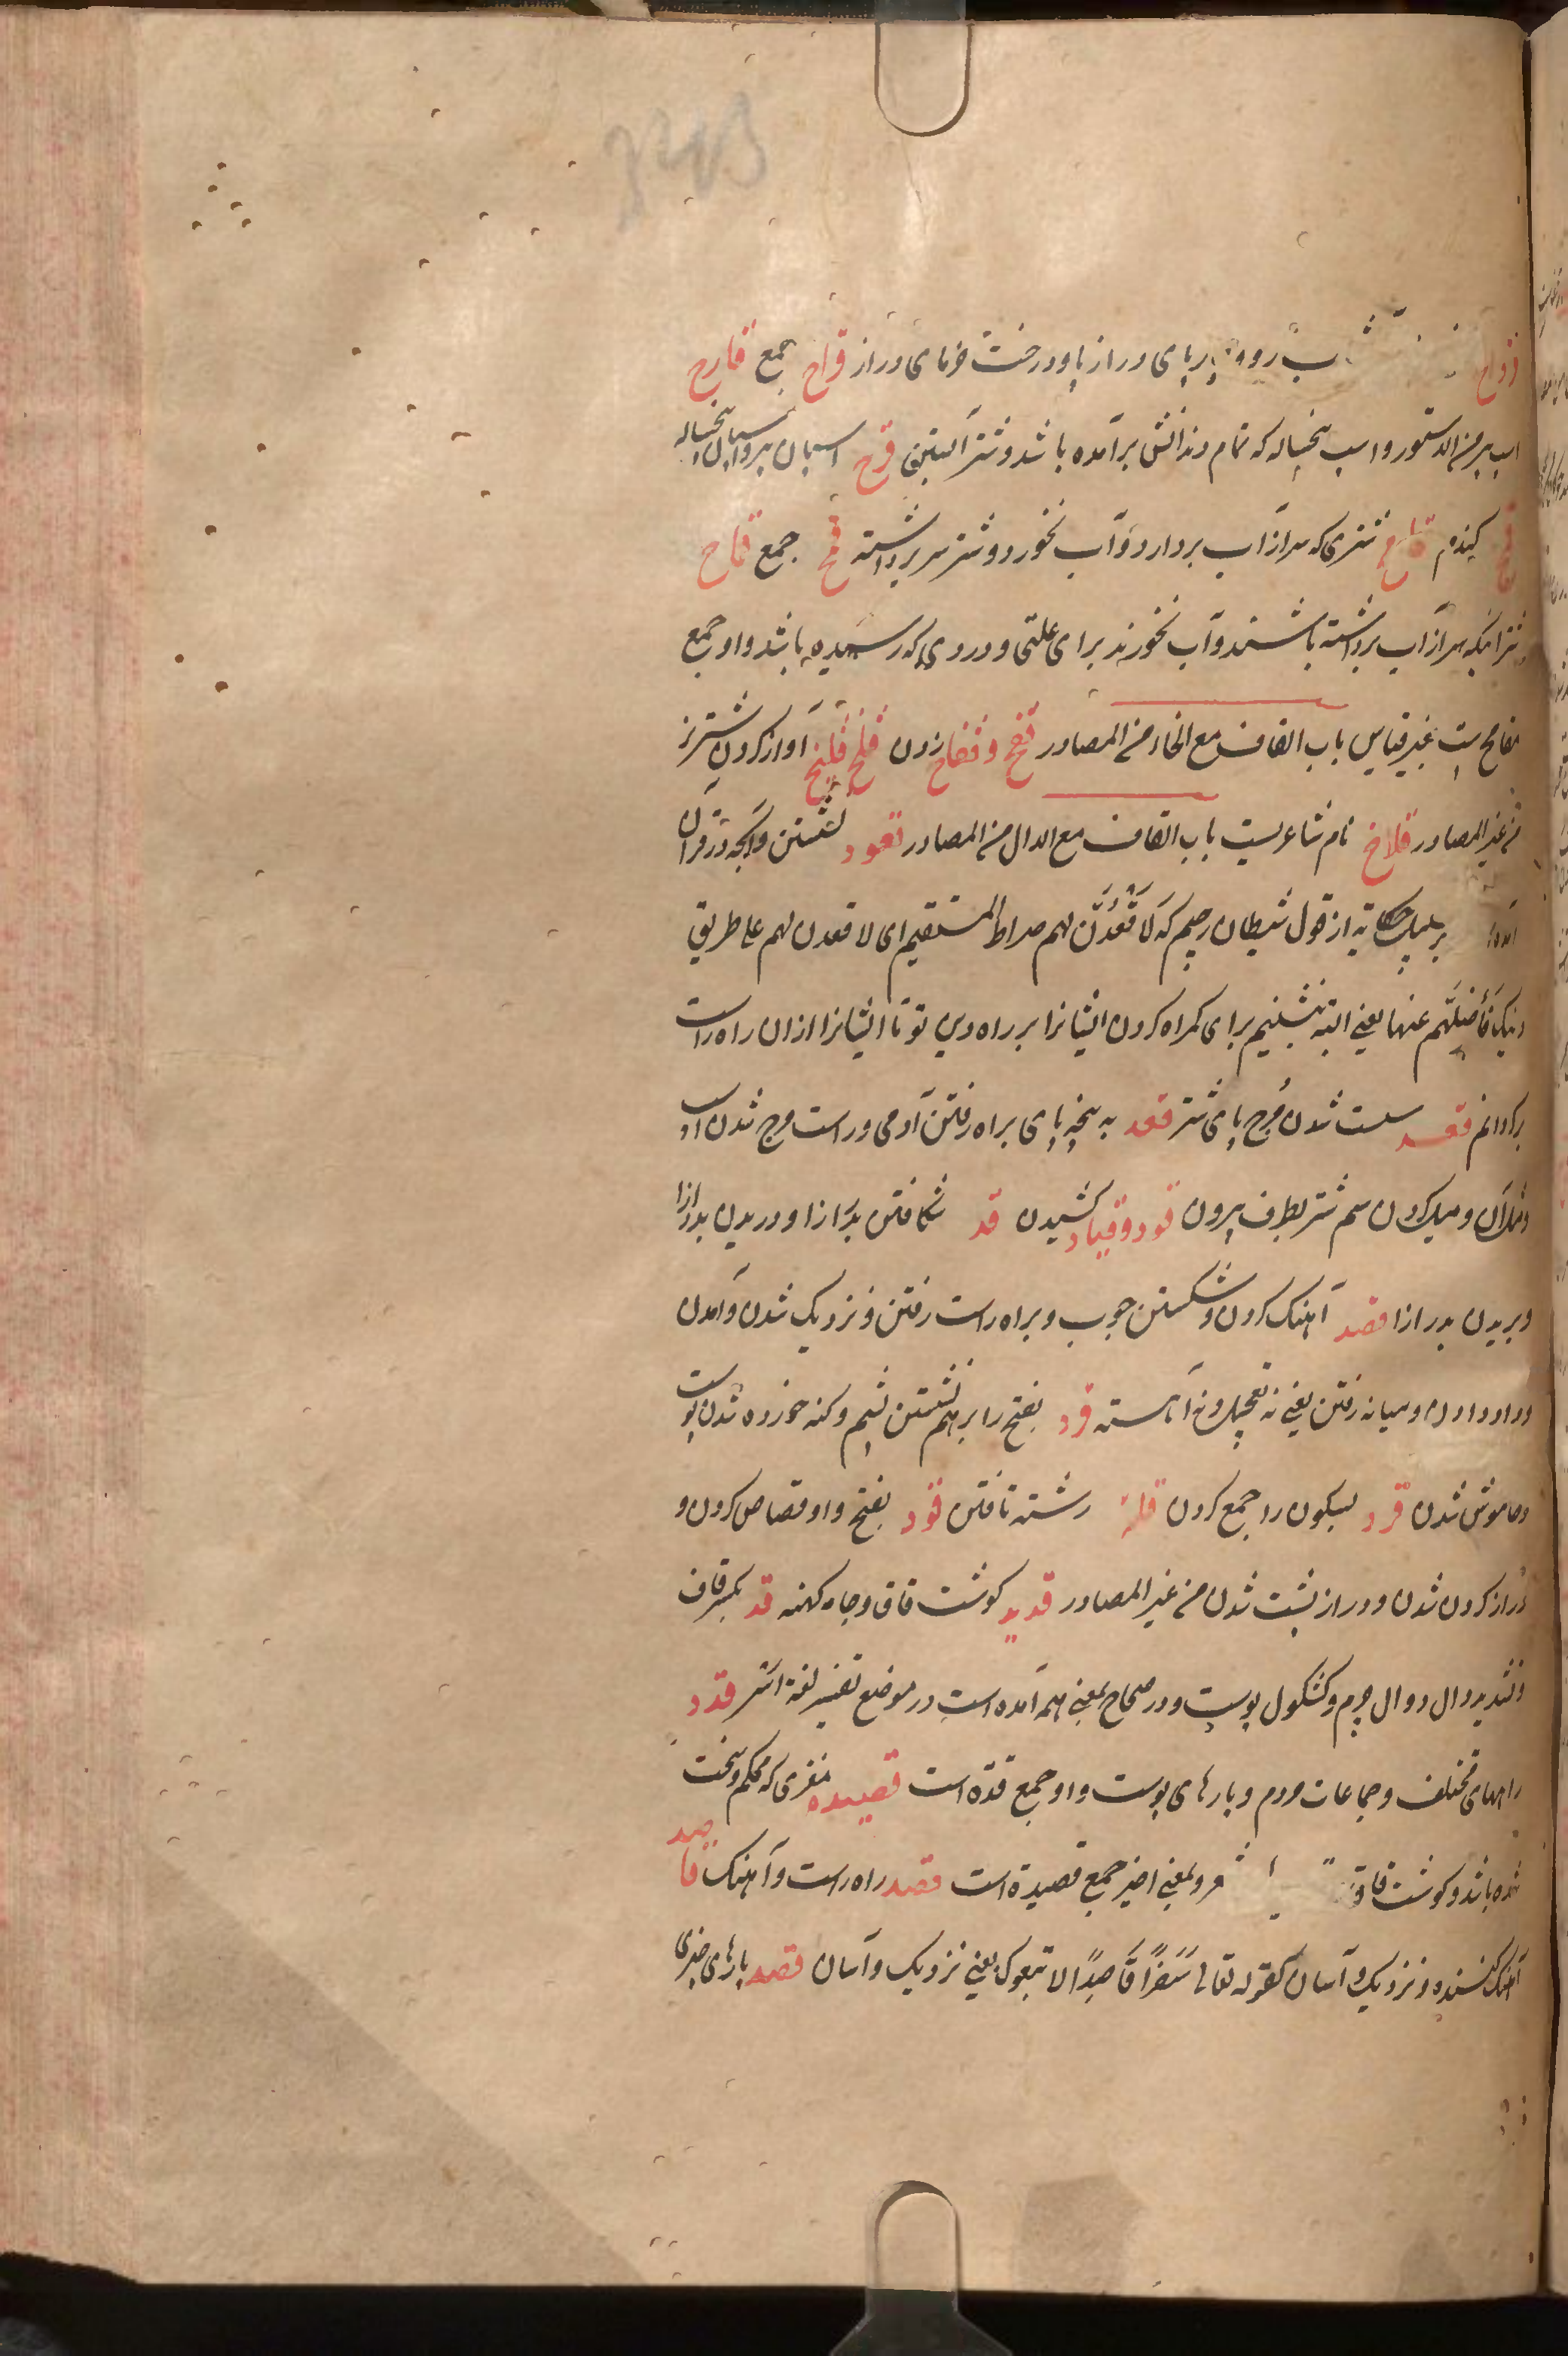 قرواح ب رود پرپای دراز پا و درخت خرمای دراز قراح جمع قارح
اسب پیر من الدستور و اسب پنجساله که تمام دندانش برآمده باشد و شتر آبستن قرح اسبان پیر و اسبان پنجساله
قمح گندم قامح شتری که سر از آب بردارد و آب نخورد و شتر سر برداشته قمح جمع قماح
شترانیکه سر از آب برداشته باشند و آب نخورند برای علتی و دردی که رسیده باشد و او جمع
مقامح ست غیر قیاس باب القاف مع الخاء من المصادر قفخ و قفاخ زدن قلخ قلیخ آواز کردن شتر نر
من غیر المصادر قلاخ نام شاعریست باب القاف مع الدال من المصادر قعود نشستن و آنچه در قرآن
آمده بر سبیل حکایة از قول شیطان رجیم که لاقعدن لهم صراط المستقیم ای لاقعدن لهم علی طریق
دینک فاضلهم عنها یعنی البته بنشینم برای کمراه کردن ایشانرا بر راه دین تو تا ایشانرا ازان راه راست
بردانم قعد سست شدن مرج پای شتر قفد به پنجه پای براه رفتن آدمی و راست مرج شدن اسب
و مثل آن و میل کردن سم شتر بطرف بیرون قود و قیاد کشیدن قد شکافتن بدرازا و دریدن بدرازا
و بریدن بدرازا قصد آهنک کردن و شکستن چوب و براه راست رفتن و نزدیک شدن و آمدن
و داد دادن و میانه رفتن یعنی نه تعجیل و نه آهسته قرد بفتح را برهم نشستن پشم و کنه خورده شدن پوست
و خاموش شدن قرد بسکون را جمع کردن قلد رشته تافتن قود بفتح واو قصاص کردن و
دراز کردن شدن و دراز پشت شدن من غیر المصادر قدید کوشت قاق و جامه کهنه قد بکسر قاف
و تشدید دال دوال چرم و کشکول پوست و در صحاح بمعنی همه آمده است در موضع تفسیر لغة اشر قدد
راههای مختلف و جماعات مردم و پارهای پوست و او جمع قدة است قصیده مغزی که محکم و سخت
شده باشد و کوشت قاق و بمعنی اخیر جمع قصیدة است قصد راه راست و آهنک قاصد
آهنک کننده و نزدیک و آسان کقوله تعالی سفرا قاصدا لاتبعوک یعنی نزدیک و آسان قصد پارهای چیزی